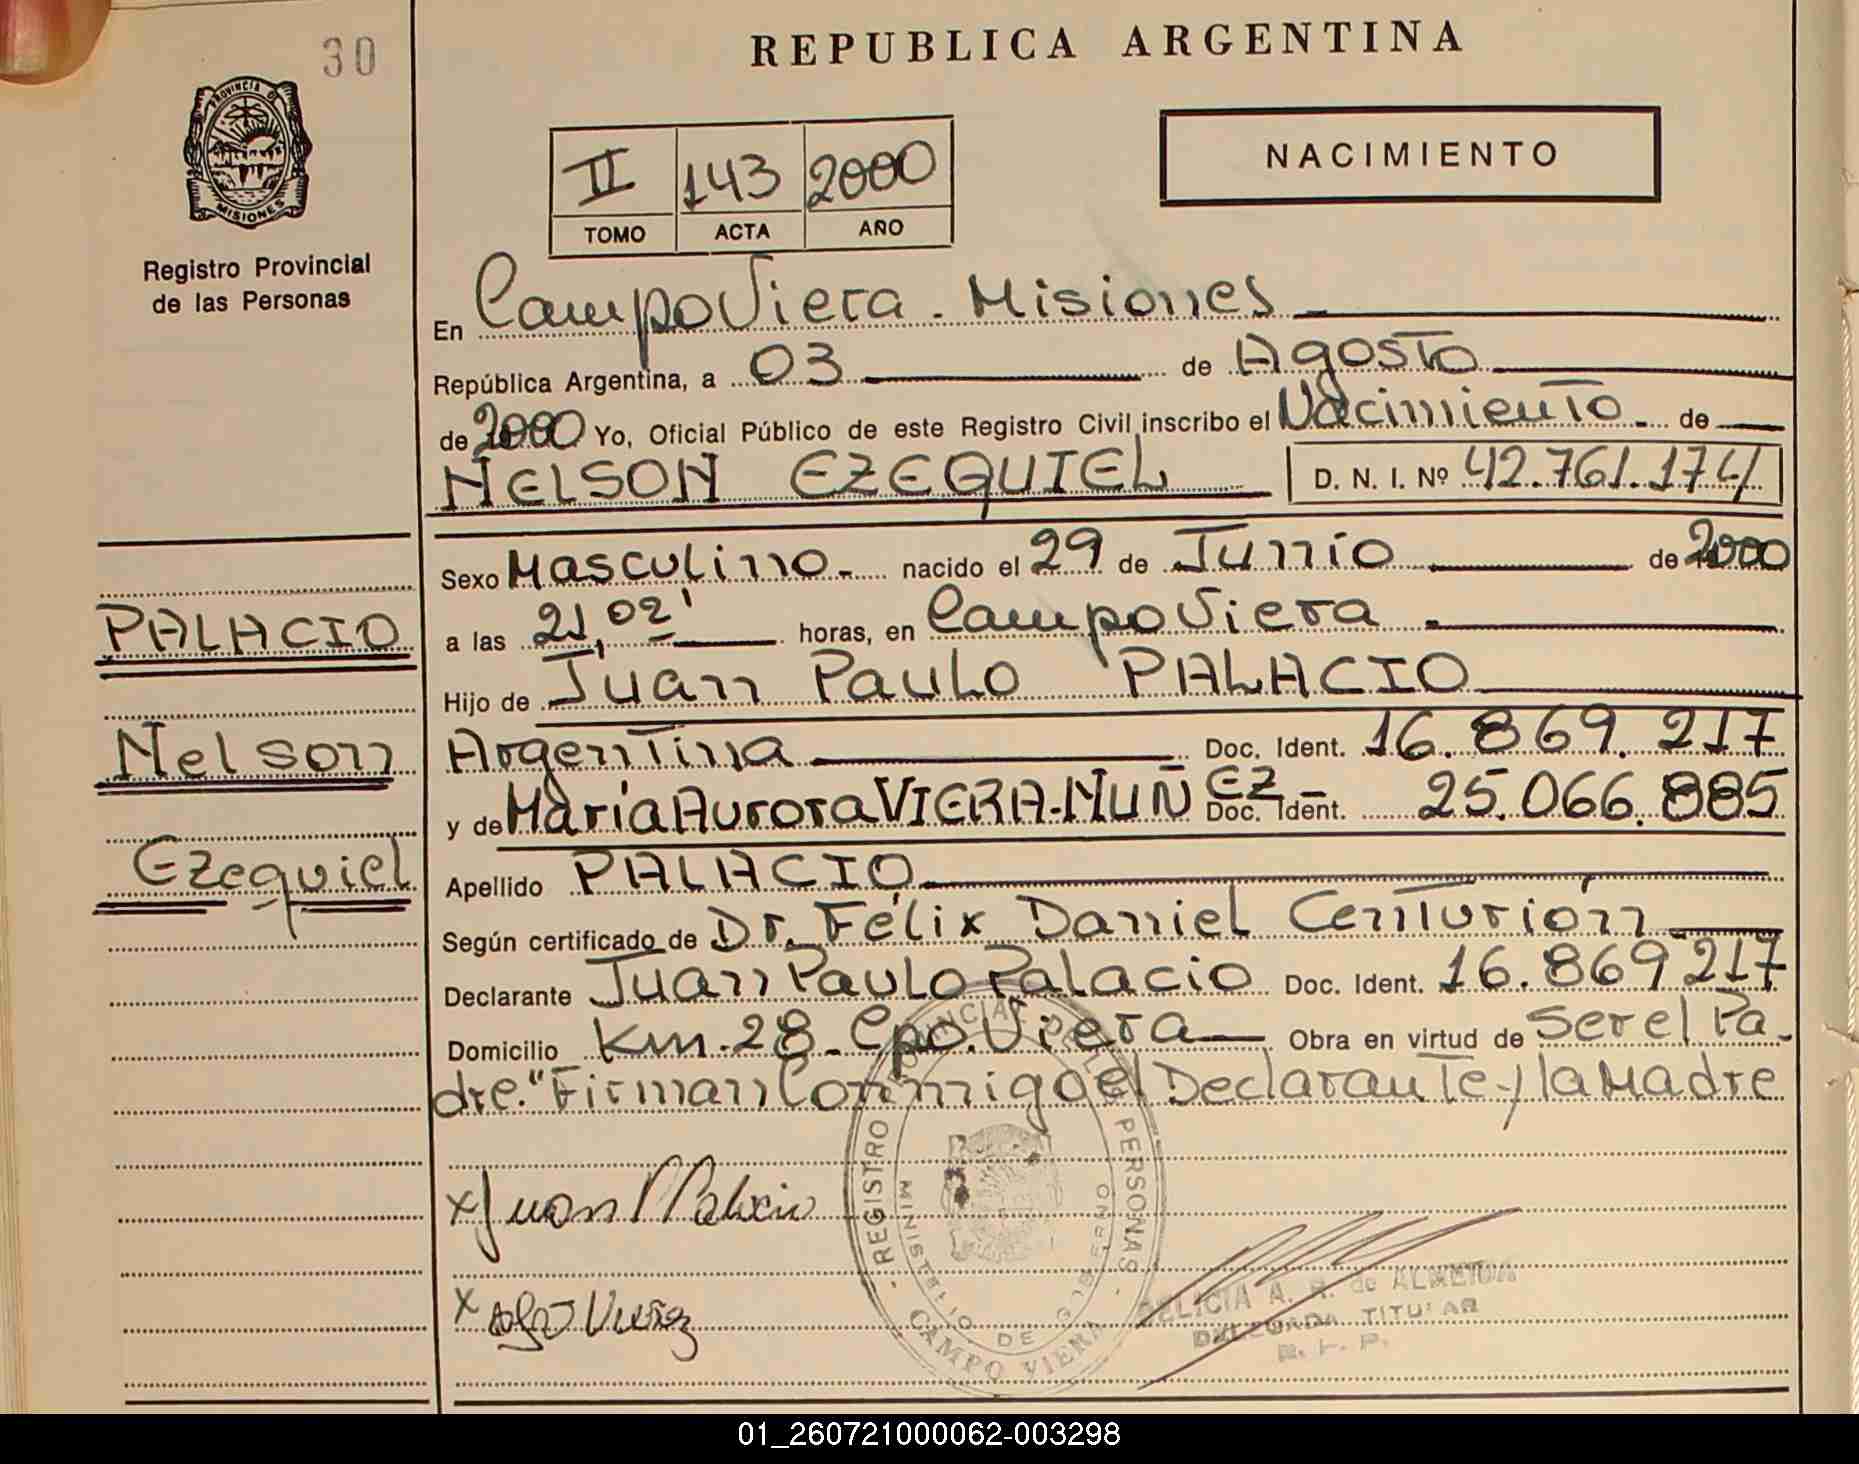 30
REPUBLICA ARGENTINA
PROVINCIA DE
MISIONES
Registro Provincial
de las Personas
II 143 2000
TOMO ACTA AÑO
NACIMIENTO
En Campo Viera - Misiones
República Argentina, a 03 de Agosto
de 2000 Yo, Oficial Público de este Registro Civil inscribo el Nacimiento - de
NELSON EZEQUIEL D. N. I. Nº 42.761.174
Sexo Masculino - nacido el 29 de Junio de 2000
a las 21,02' horas, en Campo Viera -
PALACIO
Hijo de Juan Paulo PALACIO
Nelson
Argentina Doc. Ident. 16.869.217
y de María Aurora VIERA-MUÑEZ Doc. Ident. 25.066.885
Ezequiel
Apellido PALACIO
Según certificado de Dr. Félix Daniel Centurión
Declarante Juan Paulo Palacio Doc. Ident. 16.869.217
Domicilio Km.28 - Cpo. Viera - Obra en virtud de ser el Pa-
dre." Firman Conmigo el Declarante y la Madre
x Juan Palacio
x
REGISTRO PROVINCIAL DE LAS PERSONAS
MINISTERIO DE GOBIERNO
CAMPO VIERA
DELICIA A. R. de ALMEIDA
DELEGADA TITULAR
R. P. P.
01_260721000062-003298